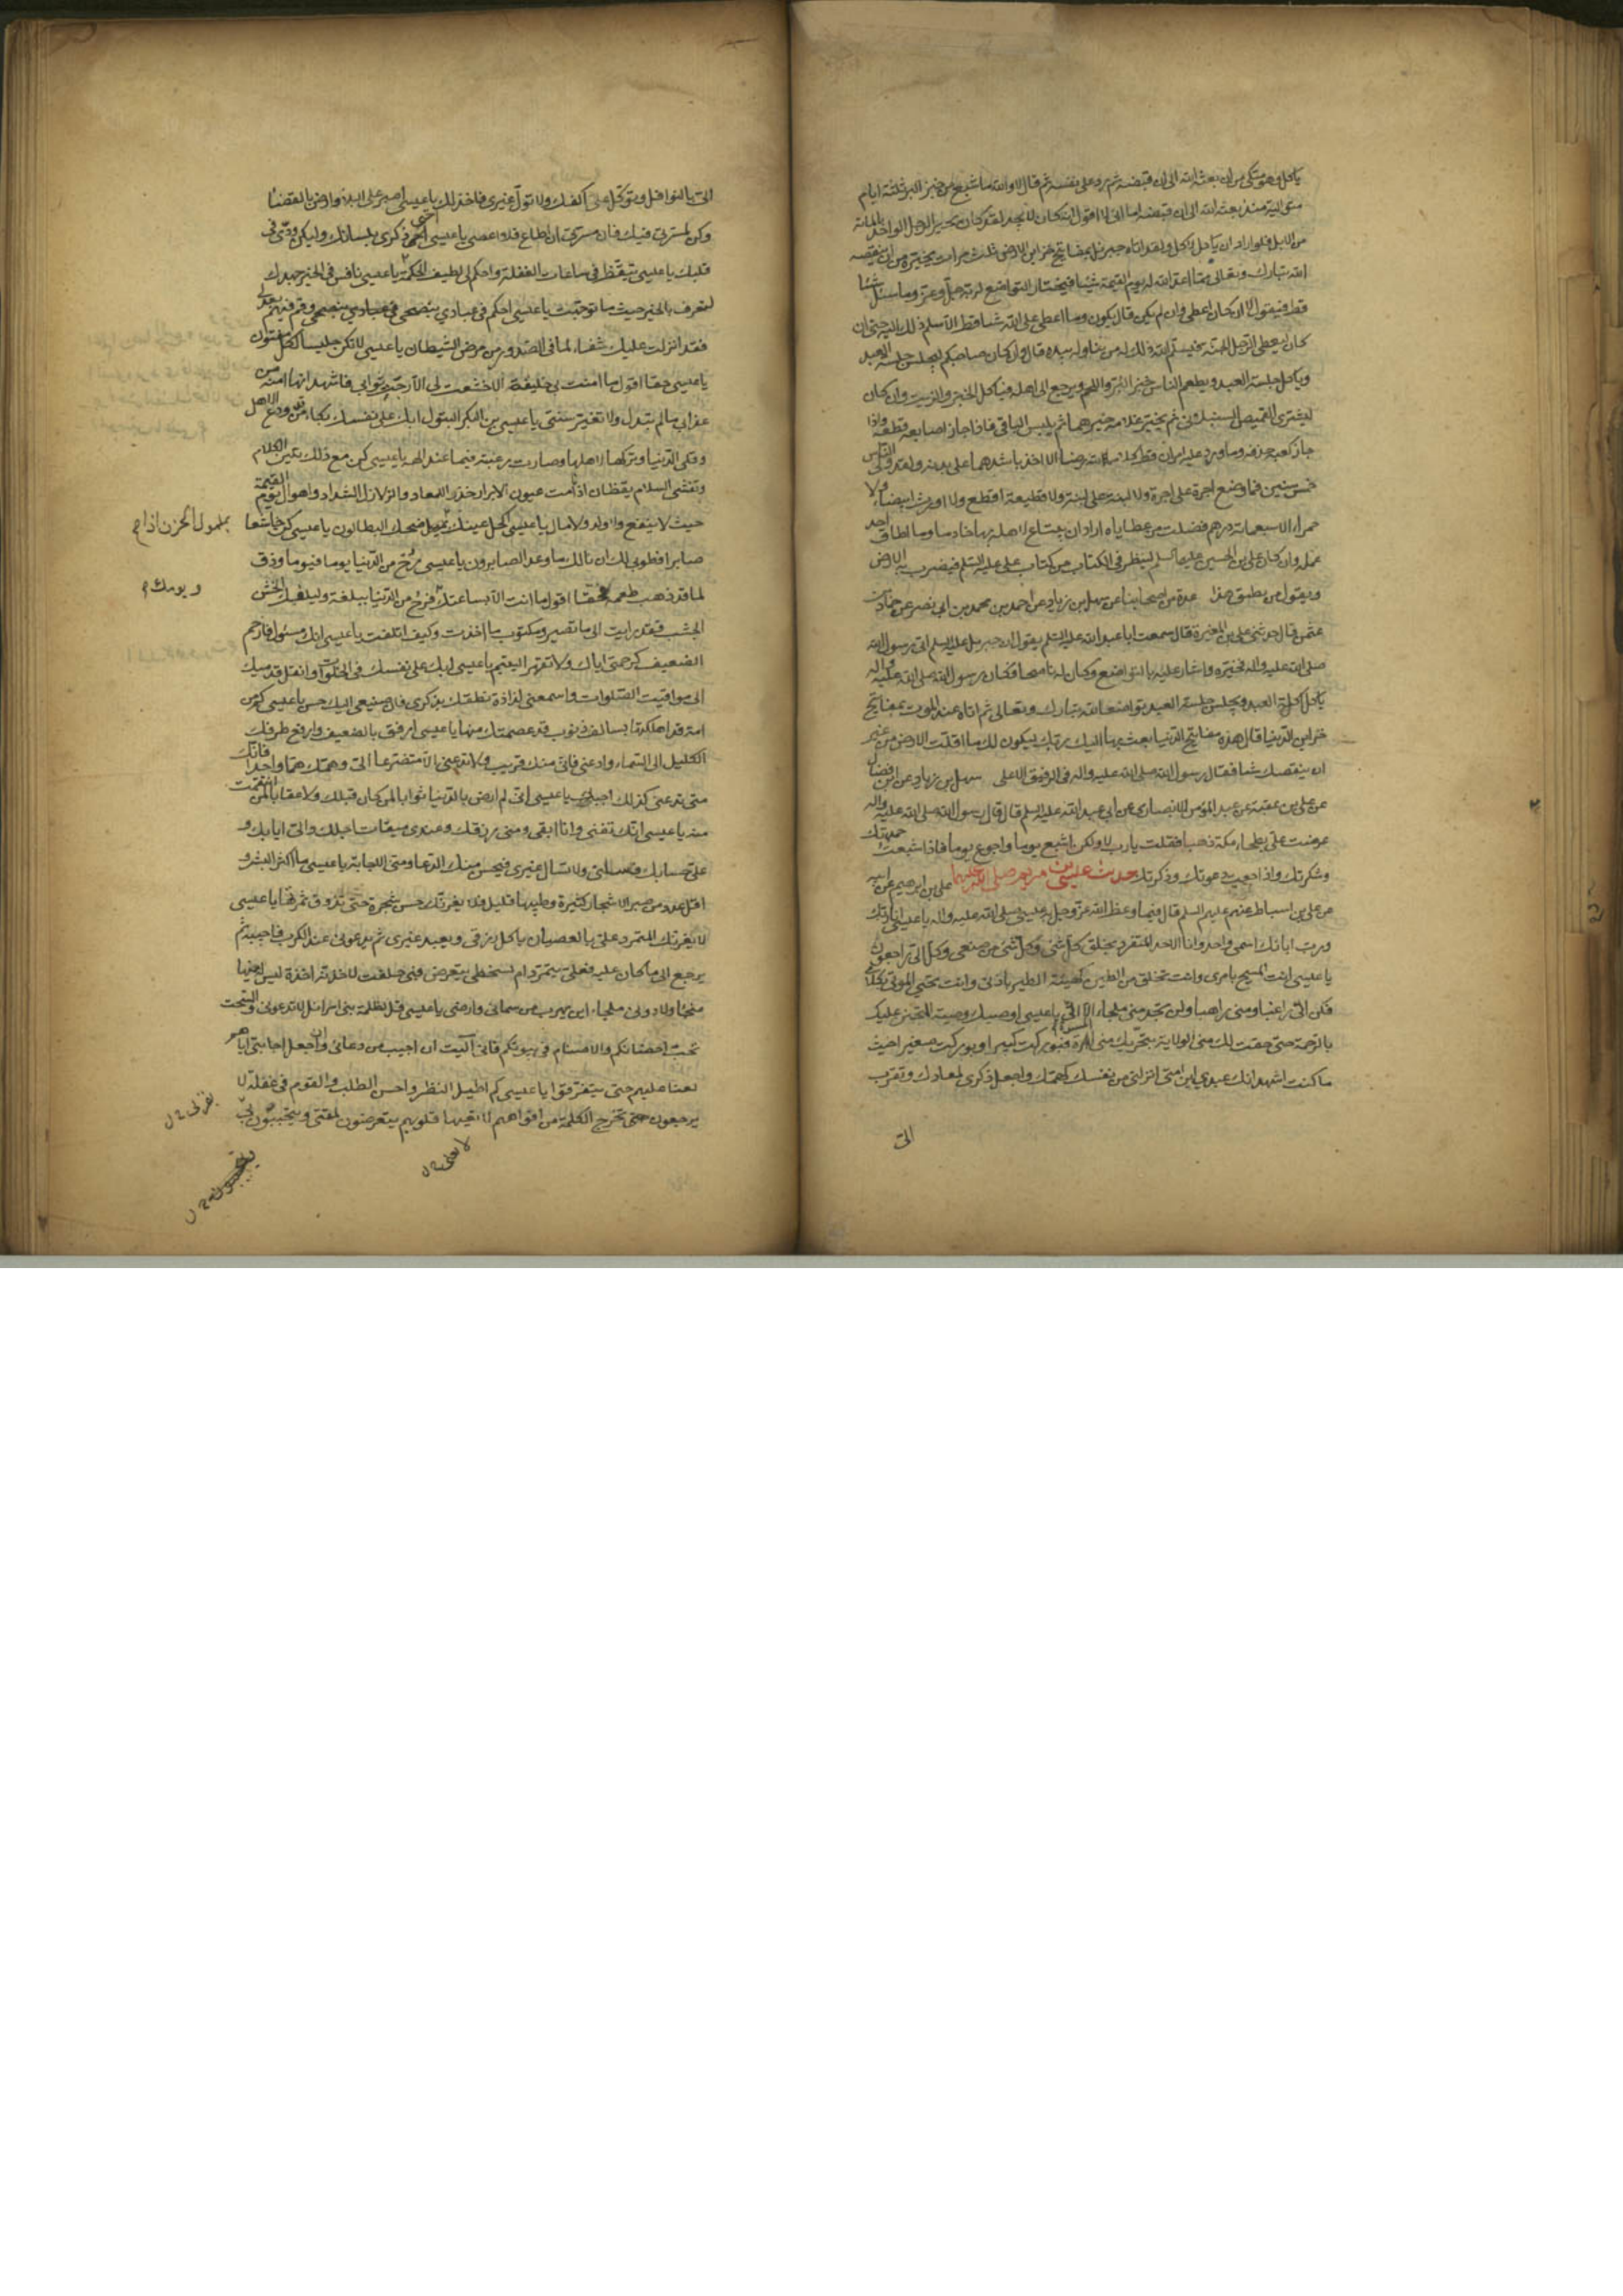 ياكل وهو متكى من ان بعثه الله الى ان قبضه ثم رد على نفسه ثم قال لا والله ما شبع من خبز البر ثلثة ايام
متوالية منذ بعثه الله الى ان قبضه اما انى لا اقول انه كان لا يجد لقد كان يجيز الرجل الواحد بالمائة
من الابل فلو اراد ان ياكل لاكل ولقد اتاه جبرئيل بمفاتيح خزاين الارض ثلث مرات يخيره من ان ينقصه
الله تبارك وتعالى مما اعد الله له يوم القيمة شيئا فيختار التواضع لربه جل وعز وما سئل شيئا
قط فيقول لا ان كان اعطى وان لم يكن قال يكون وما اعطى على الله شيئا قط الا سلم ذلك اليه حتى ان
كان ليعطى الرجل الجنة فيسلم الله ذلك له من تناوله بيده قال وان كان صاحبكم ليجلس جلسة العبد
وياكل جلسة العبد ويطعم الناس خبز البر واللحم ويرجع الى اهله فياكل الخبز والزيت وان كان
ليشترى القميص السنبلانى ثم يخير غلامه خيرهما ثم يلبس الباقى فاذا جاز اصابعه قطعه واذا
جاز كعبه حذفه وما ورد عليه امران قط كلاهما لله رضا الا اخذ باشدهما على بدنه ولقد ولى الناس
خمس سنين فما وضع اجرة على اجرة ولا لبنة على لبنة ولا قطيعة اقطع ولا اورث بيضاء ولا
حمراء الا سبعمائة درهم فضلت من عطاياه اراد ان يبتاع لاهله بها خادما وما اطاق احد
عمله وان كان على بن الحسين عليهما السلم لينظر فى الكتاب من كتاب على عليه السلم فيضرب به الارض
ويقول من يطيق هذا عدة من اصحابنا عن سهل بن زياد عن احمد بن محمد بن ابى نصر عن حماد بن
عثمن قال حدثنى على بن المغيرة قال سمعت ابا عبد الله عليه السلم يقول ان جبرئيل عليه السلم اتى رسول الله
صلى الله عليه واله فخيره واشار عليه بالتواضع وكان له ناصحا فكان رسول الله صلى الله عليه واله
ياكل اكلة العبد ويجلس جلسة العبد تواضعا لله تبارك وتعالى ثم اتاه عند الموت بمفاتيح
خزاين الدنيا فقال هذه مفاتيح الدنيا بعث بها اليك ربك ليكون لك ما اقلت الارض من غير
ان ينقصك شيئا فقال رسول الله صلى الله عليه واله فى الرفيق الاعلى سهل بن زياد عن ابن فضال
عن على بن عقبة عن عبد المؤمن الانصارى عن ابى عبد الله عليه السلم قال قال رسول الله صلى الله عليه واله
عرضت على بطحاء مكة ذهبا فقلت يا رب لا ولكن اشبع يوما واجوع يوما فاذا شبعت حمدتك
وشكرتك واذا جعت دعوتك وذكرتك حديث عيسى بن مريم صلى الله عليهما على بن ابرهيم عن ابيه
عن على بن اسباط عنهم عليهم السلم قال فيما وعظ الله عز وجل به عيسى صلى الله عليه واله يا عيسى انا ربك
ورب ابائك اسمى واحد وانا الاحد المتفرد بخلق كل شئ وكل شئ من صنعى وكل الى راجعون
يا عيسى انت المسيح بامرى وانت تخلق من الطين كهيئة الطير باذنى وانت تحيى الموتى بكلامى
فكن الى راغبا ومنى راهبا ولن تجد منى ملجاء الا الى يا عيسى اوصيك وصية المتحنن عليك
بالرحمة حتى حقت لك منى الولاية بتحريك منى المسرة فبوركت كبيرا وبوركت صغيرا حيث
ما كنت اشهد انك عبدى ابن امتى انزلنى من نفسك كهمك واجعل ذكرى لمعادك وتقرب
الى
الى بالنوافل وتوكل على اكفك ولا تول غيرى فاخذلك يا عيسى اصبر على البلاء وارض بالقضاء
وكن لمسرتى فيك فان مسرتى ان اطاع فلا اعصى يا عيسى احى ذكرى بلسانك وليكن ودى فى
قلبك يا عيسى تيقظ فى ساعات الغفلة واحكم لى لطيف الحكمة يا عيسى نافس فى الخير جهدك
لتعرف بالخير حيث ما توجهت يا عيسى احكم فى عبادى بنصحى وقم فيهم بعدلى
فقد انزلت عليك شفاء لما فى الصدور من مرض الشيطان يا عيسى لا تكن جليسا لكل مفتون
يا عيسى حقا اقول ما امنت بى خليقة الا خشعت لى الا رجت ثوابى فاشهد انها امنة من
عقابى ما لم تبدل ولا تغير سنتى يا عيسى بن البكر البتول ابك على نفسك بكاء من ودع الاهل
وقلى الدنيا وتركها لاهلها وصارت رغبته فيما عند الهه يا عيسى كن مع ذلك تلين الكلام
وتفشى السلام يقظان اذا نامت عيون الابرار حذر المعاد والزلازل الشداد واهوال يوم القيمة
حيث لا ينفع ولد ولا مال يا عيسى اكحل عينك بميل اذا ضحك البطالون يا عيسى كن خاشعا
بملمول الحزن اذا م
صابرا فطوبى لك ان نالك ما وعد الصابرون يا عيسى رح من الدنيا يوما فيوما وذق
لما قد ذهب طعمه فحقا اقول ما انت الا بساعتك فرح من الدنيا ببلغة وليكفك الخشن
و يومك م
الجشب فقد رايت الى ما تصير ومكتوب ما اخذت وكيف اتلفت يا عيسى انك مسئول فارحم
الضعيف كرحمتى اياك ولا تقهر اليتيم يا عيسى ابك على نفسك فى الخلوات وانقل قدميك
الى مواقيت الصلوات واسمعنى لذاذة نطقك بذكرى فان صنيعى اليك حسن يا عيسى كم من
امة قد اهلكتها بسالف ذنوب قد عصمتك منها يا عيسى ارفق بالضعيف وارفع طرفك
الكليل الى السماء وادعنى فانى منك قريب ولا تدعنى الا متضرعا الى وهمك هما واحدا فانك
متى تدعنى كذلك اجبك يا عيسى انى لم ارض بالدنيا ثوابا لمن كان قبلك ولا عقابا لمن انتقمت
منه يا عيسى انك تفنى وانا ابقى ومنى رزقك وعندى ميقات اجلك والى ايابك و
على حسابك فسلنى ولا تسال غيرى فيحسن منك الدعا ومنى الاجابة يا عيسى ما اكثر البشر و
اقل عدد من صبر الاشجار كثيرة وطيبها قليل فلا يغرنك حسن شجرة حتى تذوق ثمرتها يا عيسى
لا يغرنك المتمرد على بالعصيان ياكل رزقى ويعبد غيرى ثم يدعونى عند الكرب فاجيبه ثم
يرجع الى ما كان عليه فعلى يتمرد ام بسخطى يتعرض فبى حلفت لاخذنه اخذة ليس له منها
منجا ولا دونى ملجاء اين يهرب من سمائى وارضى يا عيسى قل لظلمة بنى اسرائيل لا تدعونى والسحت
تحت احضانكم والاصنام فى بيوتكم فانى اليت ان اجيب من دعانى وان اجعل اجابتى اياهم
لعنا عليهم حتى يتفرقوا يا عيسى كم اطيل النظر واحسن الطلب والقوم فى غفلة لا
يرجعون حتى تخرج الكلمة من افواههم لا تعيها قلوبهم يتعرضون لمقتى ويتحببون بى